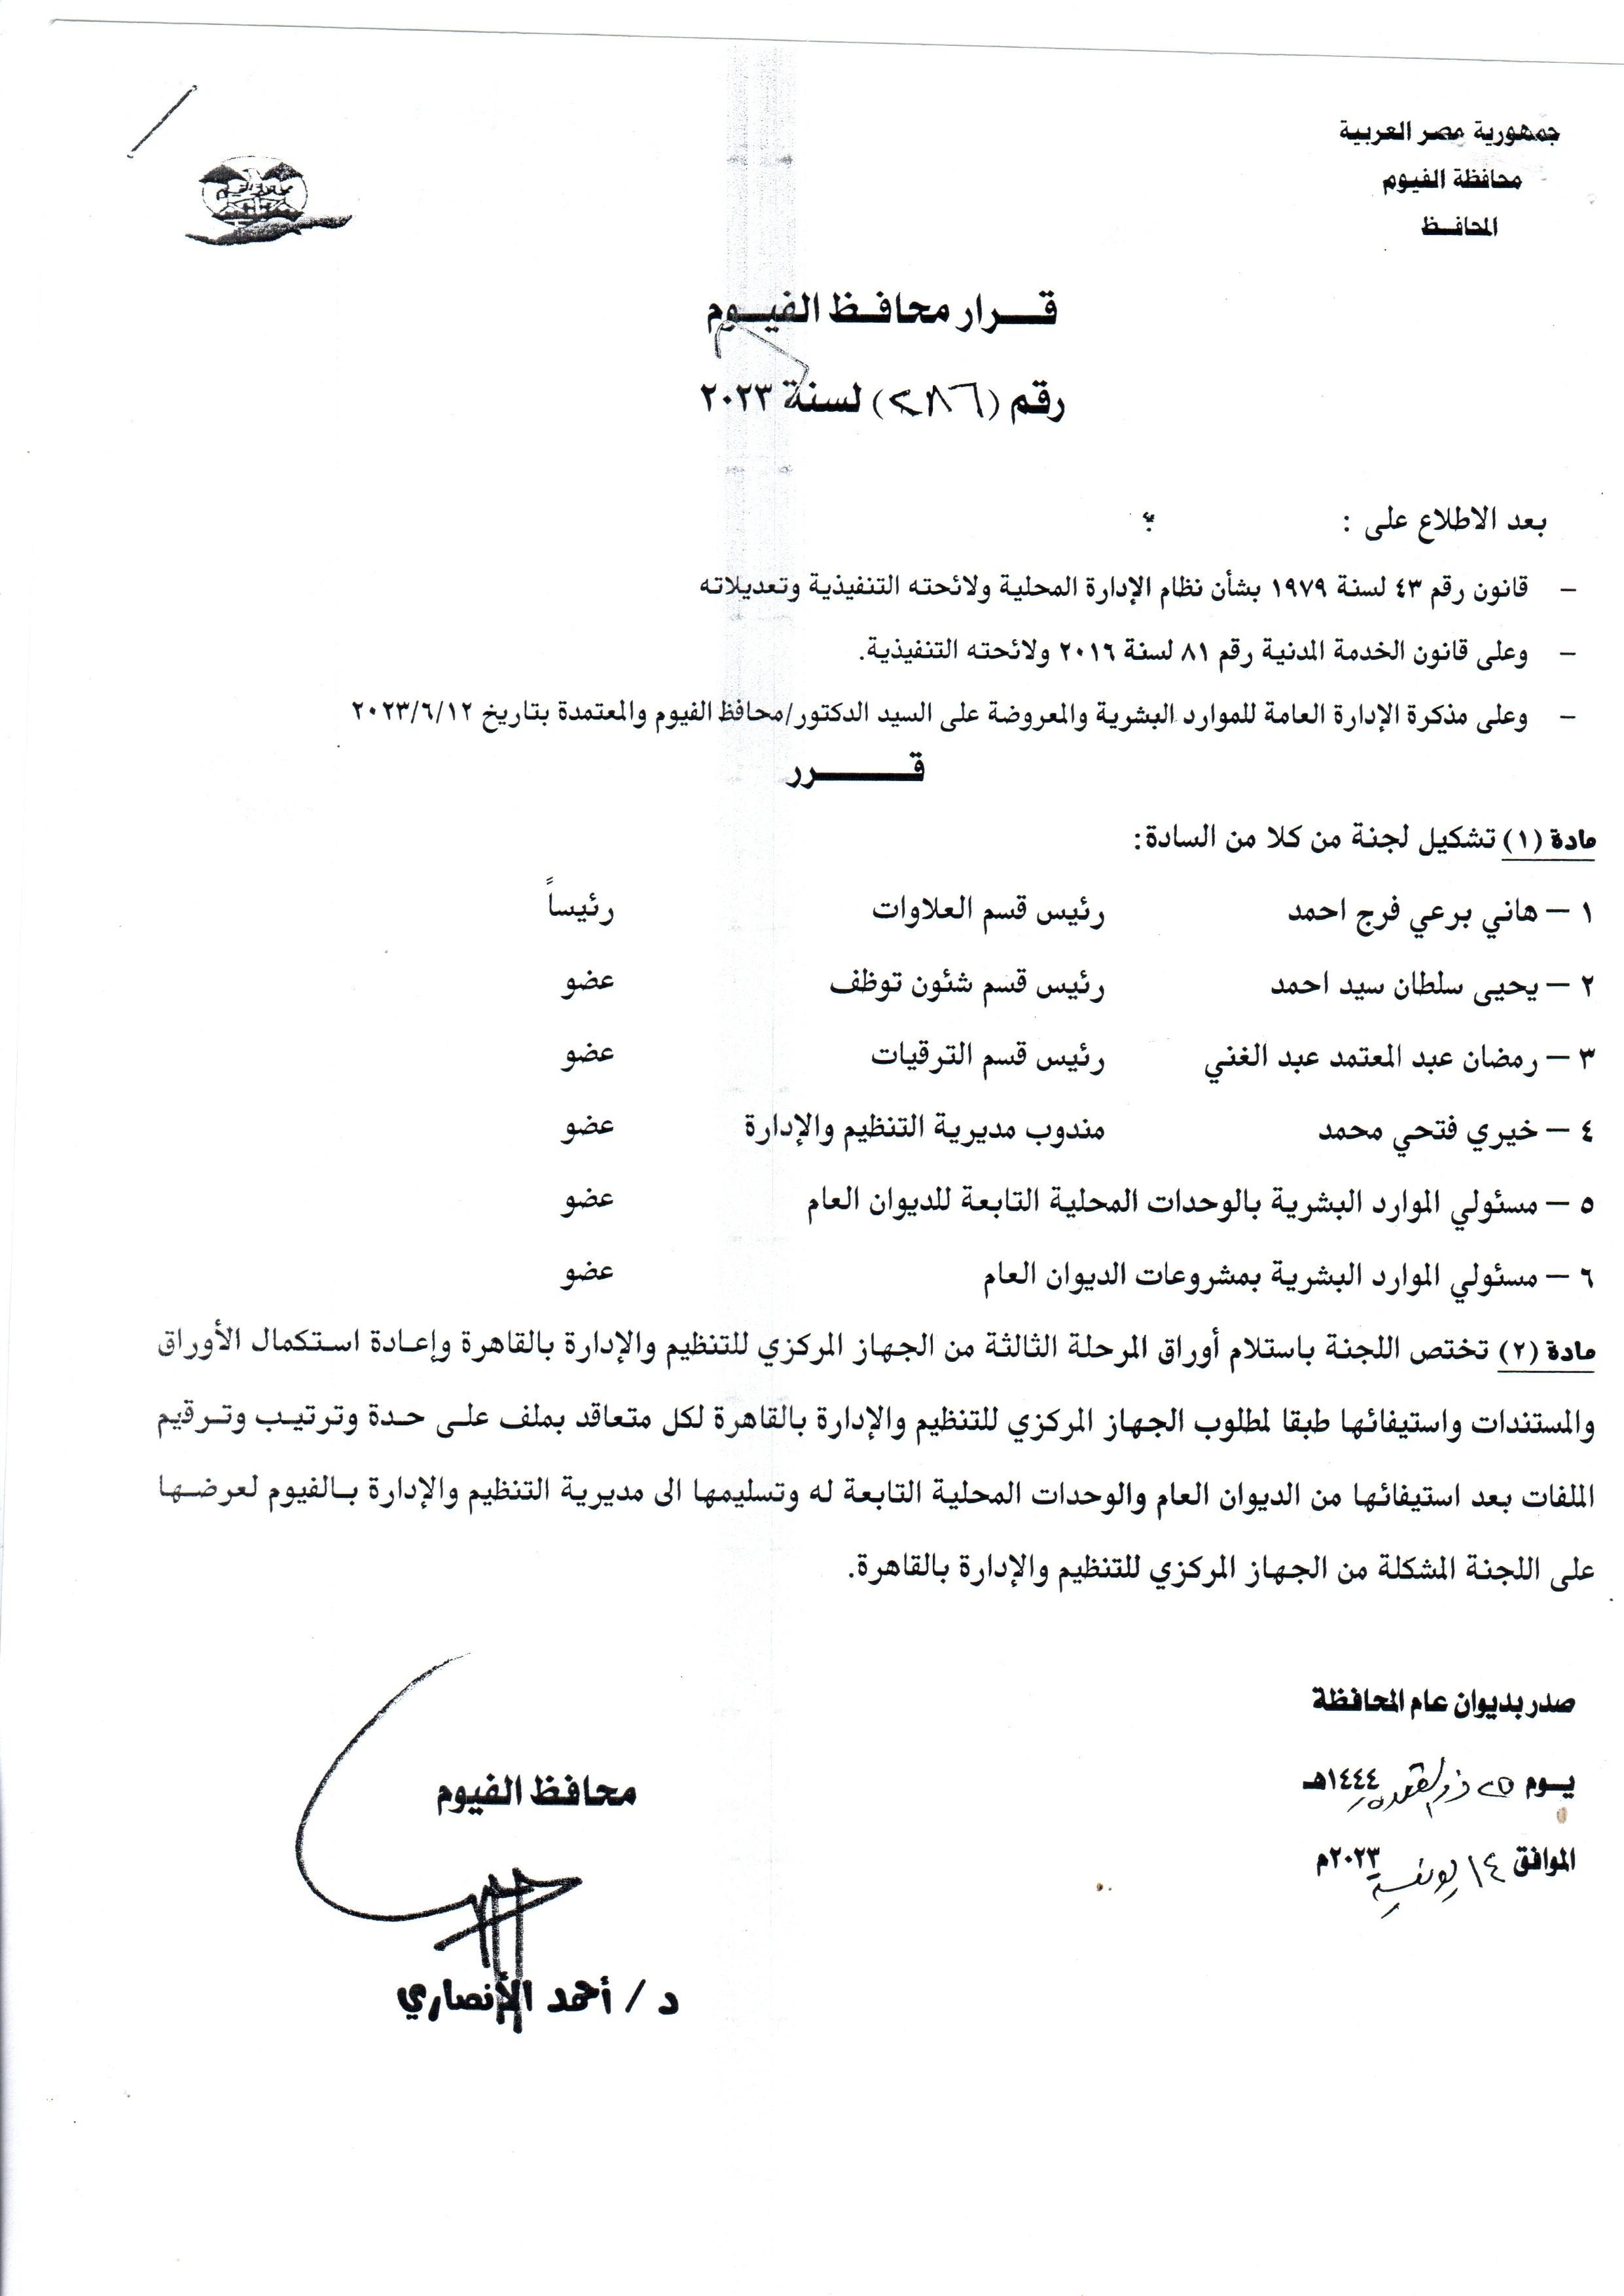 جمهورية مصر العربية
محافظة الفيوم
المحافـظ
محافظة الفيوم
قـــرار محافـظ الفيـوم
رقم (٢٨٦) لسنة ٢٠٢٣
بعد الاطلاع على :
- قانون رقم ٤٣ لسنة ١٩٧٩ بشأن نظام الإدارة المحلية ولائحته التنفيذية وتعديلاته
- وعلى قانون الخدمة المدنية رقم ٨١ لسنة ٢٠١٦ ولائحته التنفيذية.
- وعلى مذكرة الإدارة العامة للموارد البشرية والمعروضة على السيد الدكتور/محافظ الفيوم والمعتمدة بتاريخ ٢٠٢٣/٦/١٢
قــــــرر
مادة (١) تشكيل لجنة من كلا من السادة:
١ – هاني برعي فرج احمد رئيس قسم العلاوات رئيساً
٢ – يحيى سلطان سيد احمد رئيس قسم شئون توظف عضو
٣ – رمضان عبد المعتمد عبد الغني رئيس قسم الترقيات عضو
٤ – خيري فتحي محمد مندوب مديرية التنظيم والإدارة عضو
٥ – مسئولي الموارد البشرية بالوحدات المحلية التابعة للديوان العام عضو
٦ – مسئولي الموارد البشرية بمشروعات الديوان العام عضو
مادة (٢) تختص اللجنة باستلام أوراق المرحلة الثالثة من الجهاز المركزي للتنظيم والإدارة بالقاهرة وإعادة استكمال الأوراق
والمستندات واستيفائها طبقا لمطلوب الجهاز المركزي للتنظيم والإدارة بالقاهرة لكل متعاقد بملف على حدة وترتيب وترقيم
الملفات بعد استيفائها من الديوان العام والوحدات المحلية التابعة له وتسليمها الى مديرية التنظيم والإدارة بالفيوم لعرضها
على اللجنة المشكلة من الجهاز المركزي للتنظيم والإدارة بالقاهرة.
صدر بديوان عام المحافظة
يـوم ٢٥ ذو القعدة ١٤٤٤هـ
الموافق ١٤ يونية ٢٠٢٣م
محافظ الفيوم
د / أحمد الأنصاري